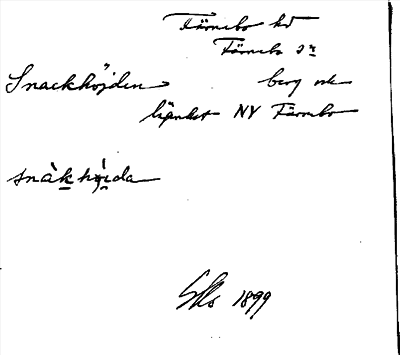 Färnebo hd
Färnebo sn
Snackhöjden berg och
lägenhet NV Färnebo
snàkhö́ida
1899